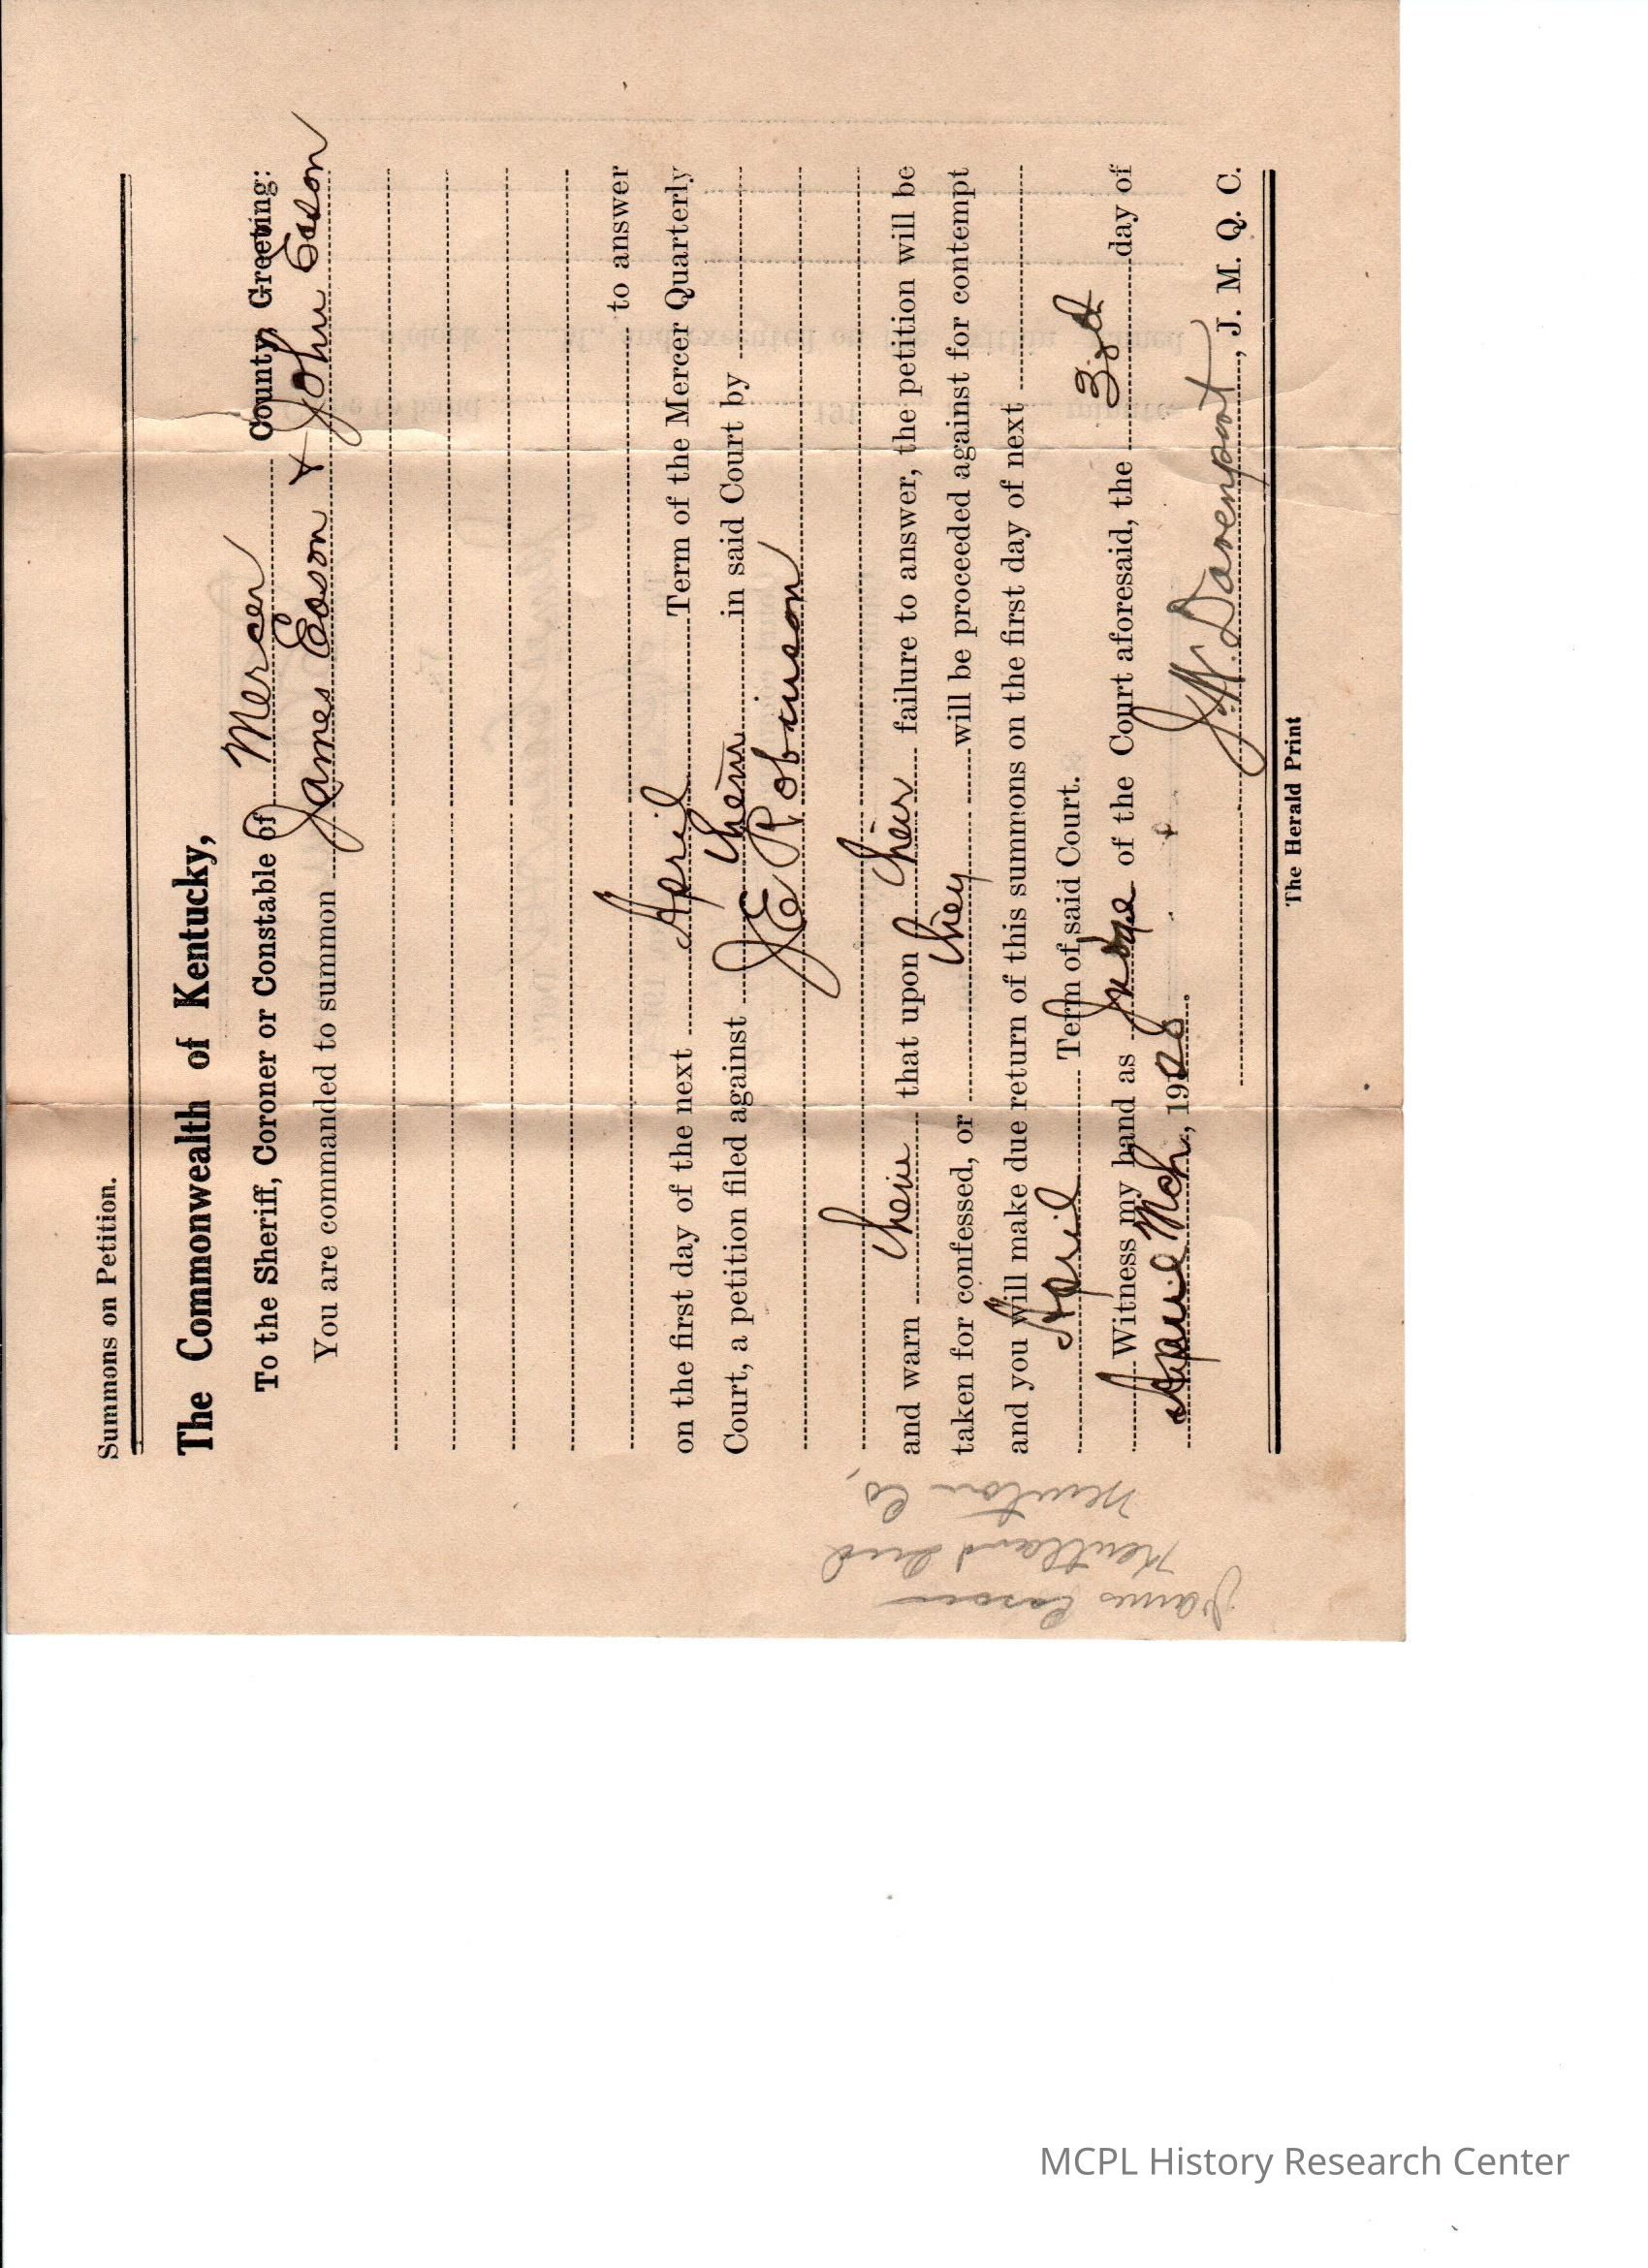 Summons on Petition.
The Commonwealth of Kentucky,
To the Sheriff, Coroner or Constable of Mercer County, Greeting:
You are commanded to summon James Eason & John Eason
to answer
on the first day of the next April Term of the Mercer Quarterly
Court, a petition filed against them in said Court by
J E Robinson
and warn them that upon their failure to answer, the petition will be
taken for confessed, or they will be proceeded against for contempt
and you will make due return of this summons on the first day of next
April Term of said Court.
Witness my hand as Judge of the Court aforesaid, the 3rd day of
Mch, 19
Davenport, J. M. Q. C.
The Herald Print
James Eason
Kentland Ind
Newton Co,
MCPL History Research Center